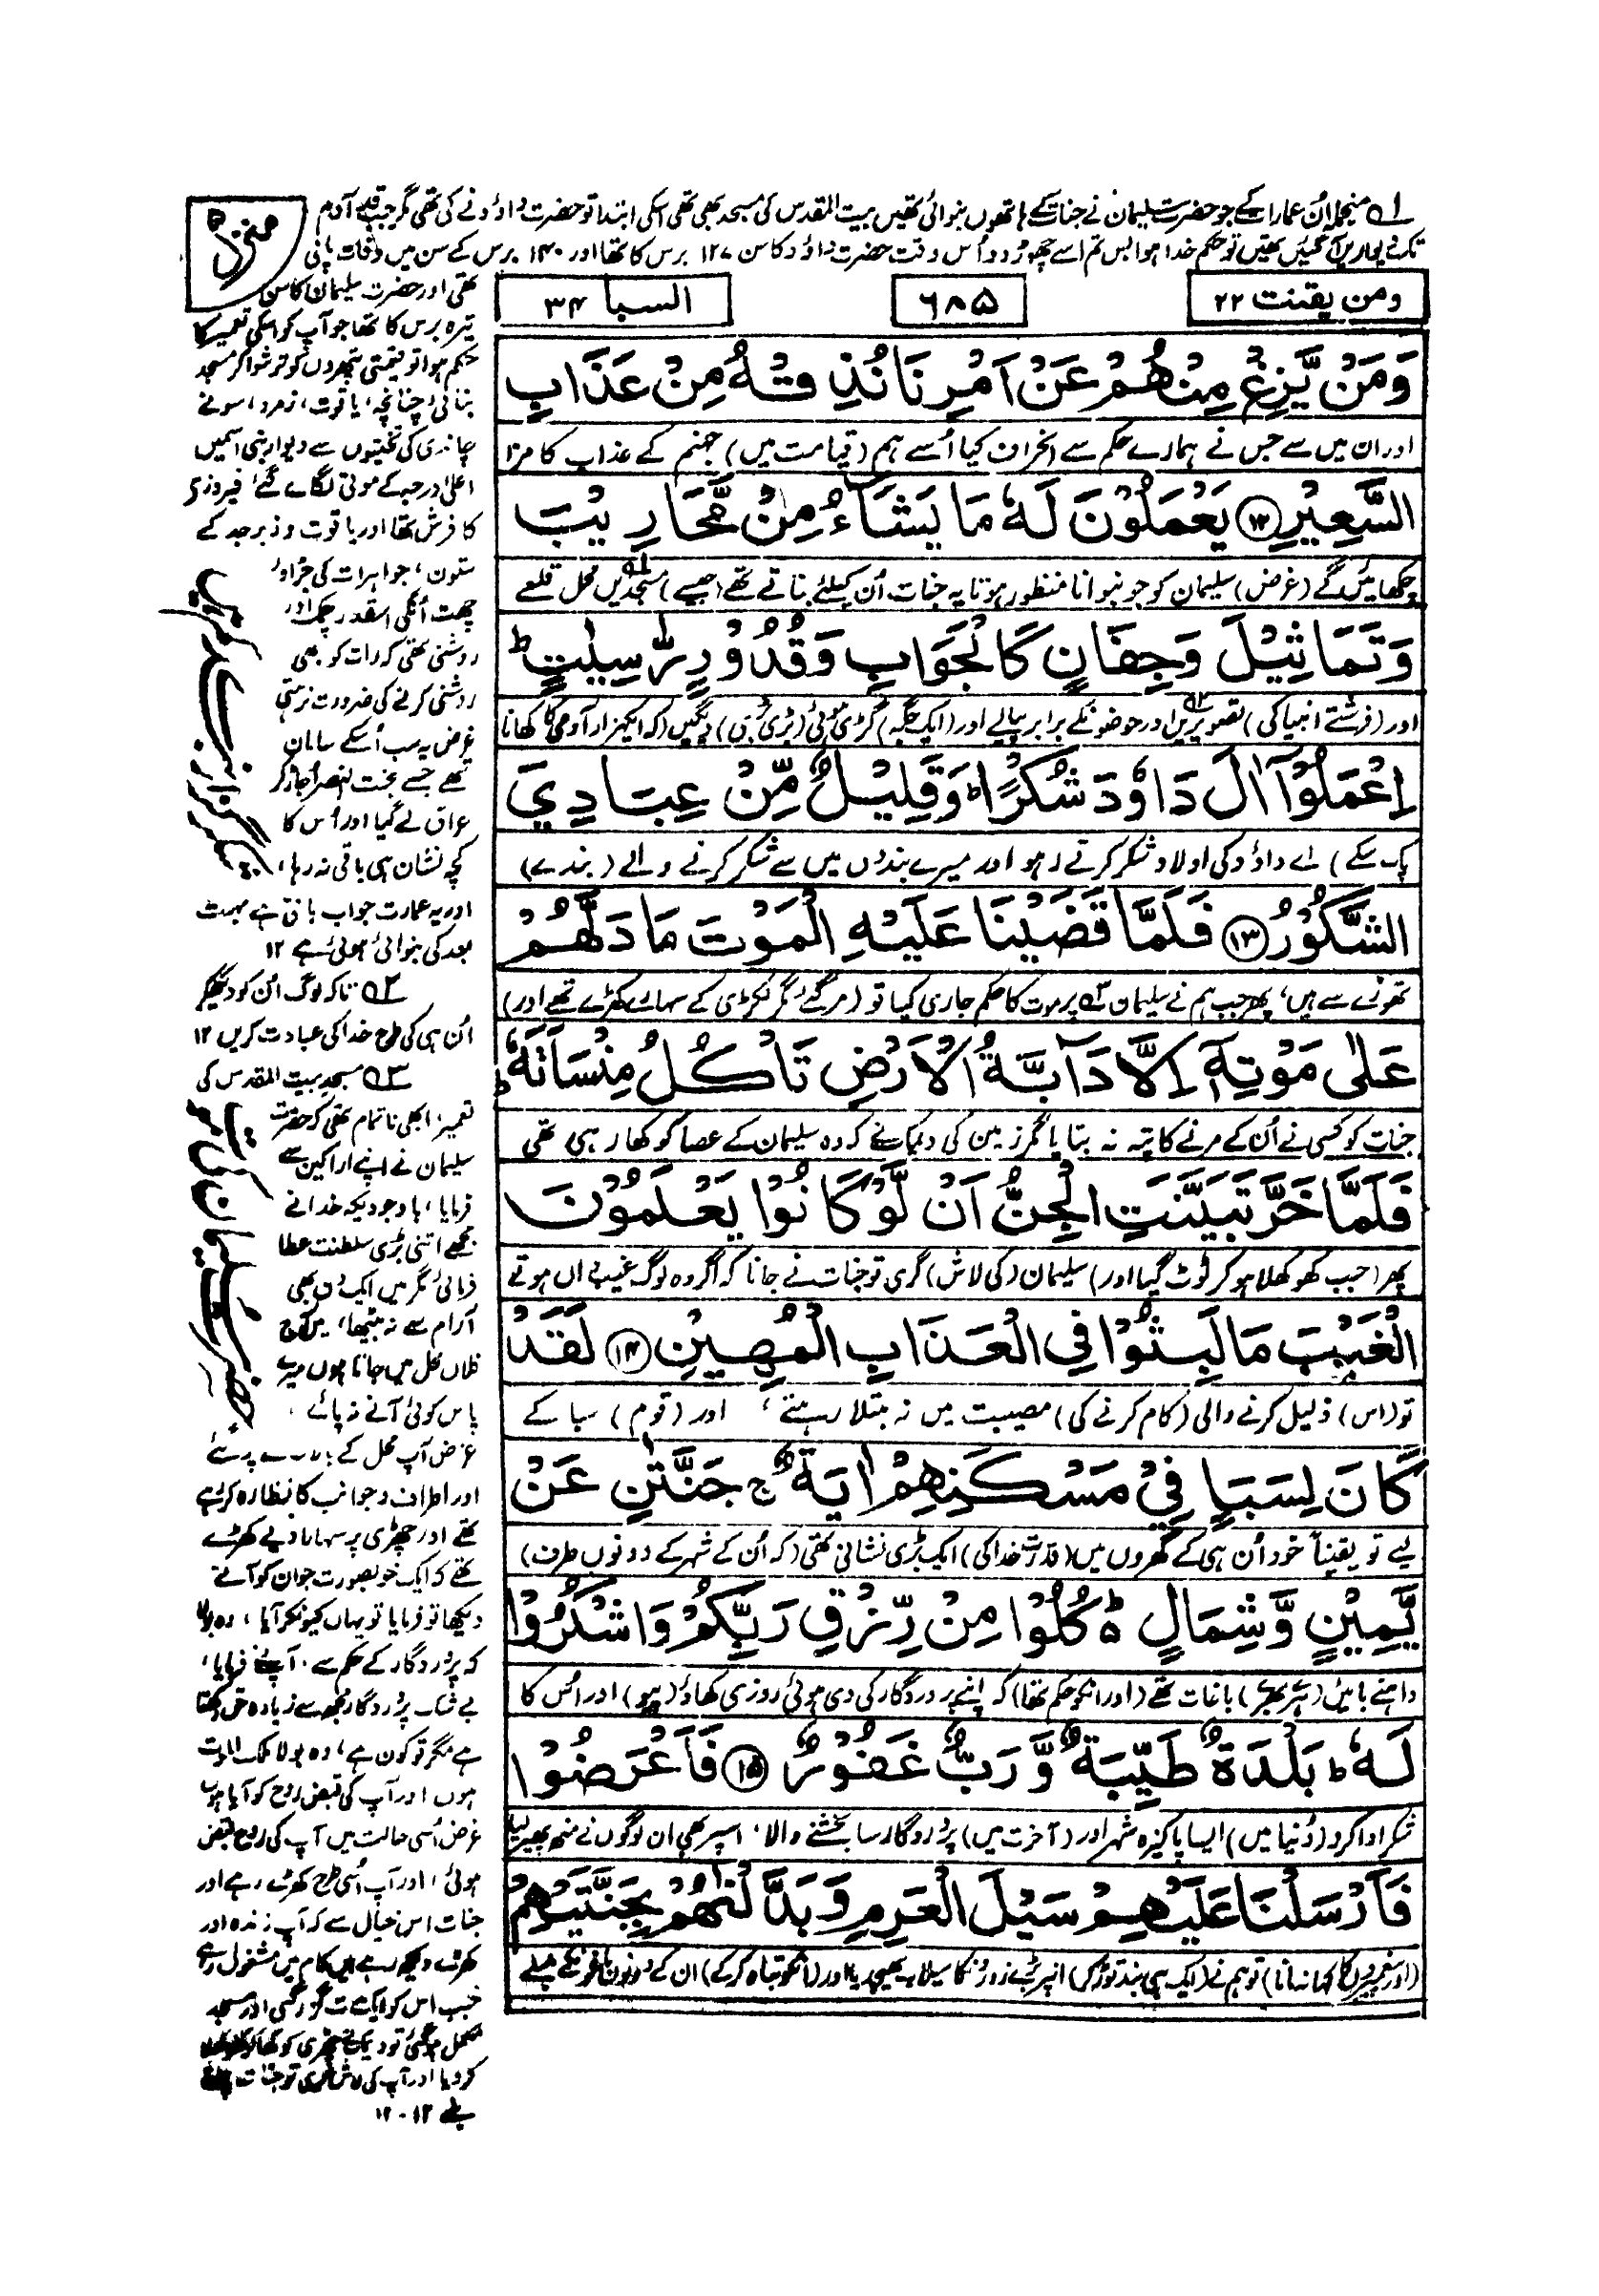 ومن یقنت ۲۲
۶۸۵
السبا ۳۴
وَمَنْ يَّزِغْ مِنْهُمْ عَنْ اَمْرِنَا نُذِقْهُ مِنْ عَذَابِ
اور ان میں سے جس نے ہمارے حکم سے انحراف کیا اُسے ہم (قیامت میں) جہنم کے عذاب کا مزا
السَّعِيْرِ ۱۲ يَعْمَلُوْنَ لَهٗ مَا يَشَآءُ مِنْ مَّحَارِيْبَ
چکھائیں گے (غرض) سلیمان کو جو بنوانا منظور ہوتا یہ جنات اُن کیلئے بناتے تھے (جیسے) مسجدیں محل قلعے
وَتَمَاثِيْلَ وَجِفَانٍ كَالْجَوَابِ وَقُدُوْرٍ رّٰسِيٰتٍ ؕ
اور (فرشتے انبیا کی) تصویریں اور حوضونکے برابر پیالے اور (ایک جگہ) گڑی ہوئی (بڑی بڑی) دیگیں (کہ ایکہزار آدمی کا کھانا
اِعْمَلُوْٓا اٰلَ دَاوٗدَ شُكْرًا ؕ وَقَلِيْلٌ مِّنْ عِبَادِيَ
پک سکے) اے داؤد کی اولاد شکر کرتے رہو اور میرے بندوں میں سے شکر کرنے والے (بندے)
الشَّكُوْرُ ۱۳ فَلَمَّا قَضَيْنَا عَلَيْهِ الْمَوْتَ مَا دَلَّهُمْ
تھوڑے سے ہیں، پھر جب ہم نے سلیمان ۳؎ پر موت کا حکم جاری کیا تو (مر گئے مگر لکڑی کے سہارے کھڑے تھے اور)
عَلٰى مَوْتِهٖٓ اِلَّا دَآبَّةُ الْاَرْضِ تَاْكُلُ مِنْسَاَتَهٗ ؕ
جنات کو کسی نے اُن کے مرنے کا پتہ نہ بتایا مگر زمین کی دیمک نے کہ وہ سلیمان کے عصا کو کھا رہی تھی
فَلَمَّا خَرَّ تَبَيَّنَتِ الْجِنُّ اَنْ لَّوْ كَانُوْا يَعْلَمُوْنَ
پھر (جب کھوکھلا ہو کر ٹوٹ گیا اور) سلیمان (کی لاش) گری تو جنات نے جانا کہ اگر وہ لوگ غیب داں ہوتے
الْغَيْبَ مَا لَبِثُوْا فِي الْعَذَابِ الْمُهِيْنِ ۱۴ لَقَدْ
تو (اس) ذلیل کرنے والی (کام کرنے کی) مصیبت میں نہ مبتلا رہتے، اور (قوم) سبا کے
كَانَ لِسَبَاٍ فِيْ مَسْكَنِهِمْ اٰيَةٌ ۚ جَنَّتٰنِ عَنْ
لیے تو یقیناً خود اُن ہی کے گھروں میں (قدرت خدا کی) ایک بڑی نشانی تھی (کہ اُن کے شہر کے دونوں طرف)
يَّمِيْنٍ وَّشِمَالٍ ؕ كُلُوْا مِنْ رِّزْقِ رَبِّكُمْ وَاشْكُرُوْا
داہنے بائیں (ہرے بھرے) باغات تھے (اور انکو حکم تھا) کہ اپنے پروردگار کی دی ہوئی روزی کھاؤ (پیو) اور اُس کا
لَهٗ ؕ بَلْدَةٌ طَيِّبَةٌ وَّرَبٌّ غَفُوْرٌ ۱۵ فَاَعْرَضُوْا
شکر ادا کرو (دُنیا میں) ایسا پاکیزہ شہر اور (آخرت میں) پروردگار سا بخشنے والا، اسپر بھی ان لوگوں نے منھ پھیر لیا
فَاَرْسَلْنَا عَلَيْهِمْ سَيْلَ الْعَرِمِ وَبَدَّلْنٰهُمْ بِجَنَّتَيْهِمْ
(اور پیغمبروں کا کہا نہ مانا) تو ہم نے (ایک ہی بند توڑ کر) انپر بڑے زوروں کا سیلاب بھیجدیا اور (انکو تباہ کرکے) ان کے دونوں باغونکے بدلے
منزل ۵
۱؎ منجملہ اُن عمارات کے جو حضرت سلیمان نے جنات کے ہاتھوں بنوائی تھیں بیت المقدس کی مسجد بھی تھی اسکی ابتدا تو حضرت داؤد نے کی تھی مگر جب قدِ آدم
تک دیواریں بن گئیں تھیں تو حکم خدا ہوا بس تم اسے چھوڑ دو اُس وقت حضرت داؤد کا سن ۱۲۷ برس کا تھا اور ۱۴۰ برس کے سن میں وفات پائی
تھی اور حضرت سلیمان کا سن
تیرہ برس کا تھا جو آپ کو اسکی تعمیر کا
حکم ہوا تو قیمتی پتھروں کو ترشوا کر مسجد
بنائی، چنانچہ، یاقوت، زمرد، سونے
چاندی کی تختیوں سے دیوار بنی اسمیں
اعلیٰ درجہ کے موتی لگائے گئے، فیروزی
کا فرش تھا اور یاقوت و زبرجد کے
ستون، جواہرات کی جڑاؤ
چھت اُنکی اسقدر چمک اور
روشنی تھی کہ رات کو بھی
روشنی کرنے کی ضرورت نہ تھی
غرض یہ سب اُسکے سامان
تھے جسے بخت النصر اُجاڑ کر
عراق لے گیا اور اُس کا
کچھ نشان ہی باقی نہ رہا،
اور یہ عمارت جو اب باقی ہے بہت
بعد کی بنوائی ہوئی ہے ۱۲
۲؎ تاکہ لوگ اُن کو دیکھ کر
اُن ہی کی طرح خدا کی عبادت کریں ۱۲
۳؎ مسجد بیت المقدس کی
تعمیر ابھی ناتمام تھی کہ حضرت
سلیمان نے اپنے اراکین سے
فرمایا، باوجودیکہ خدا نے
مجھے اتنی بڑی سلطنت عطا
فرمائی مگر میں ایک دن بھی
آرام سے نہ بیٹھا، میں آج
فلاں محل میں جاتا ہوں میرے
پاس کوئی آنے نہ پائے،
غرض آپ محل کے
اور اطراف و جوانب کا نظارہ کر رہے
تھے اور چھڑی پر سہارا دیے کھڑے
تھے کہ ایک خوبصورت جوان کو آتے
دیکھا تو فرمایا تو یہاں کیونکر آیا، وہ بولا
کہ پروردگار کے حکم سے، آپ نے فرمایا،
بے شک پروردگار مجھ سے زیادہ حق رکھتا
ہے مگر تو کون ہے، وہ بولا ملک الموت
ہوں اور آپ کی قبض روح کو آیا ہوں
غرض اُسی حالت میں آپ کی روح قبض
ہوئی، اور آپ اُسی طرح کھڑے رہے اور
جنات اس خیال سے کہ آپ زندہ اور
کھڑے دیکھ رہے ہیں کام میں مشغول رہے
جب اس کو ایک مدت گزر گئی اور مسجد
مکمل ہو گئی تو دیمک نے چھڑی کو کھا کر کھوکھلا
کر دیا اور آپ کی لاش گری تو جنات
۱۲-۱۲
حضرت سلیمان کی موت